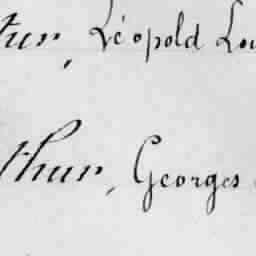 tur, Léopold Lou
thur, Georges